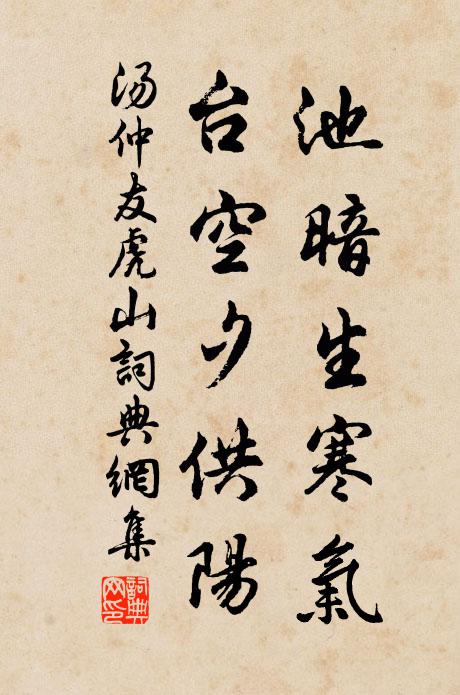 池暗生寒氣
台空夕供陽
汤仲友虎山詞典網集
詞典網印